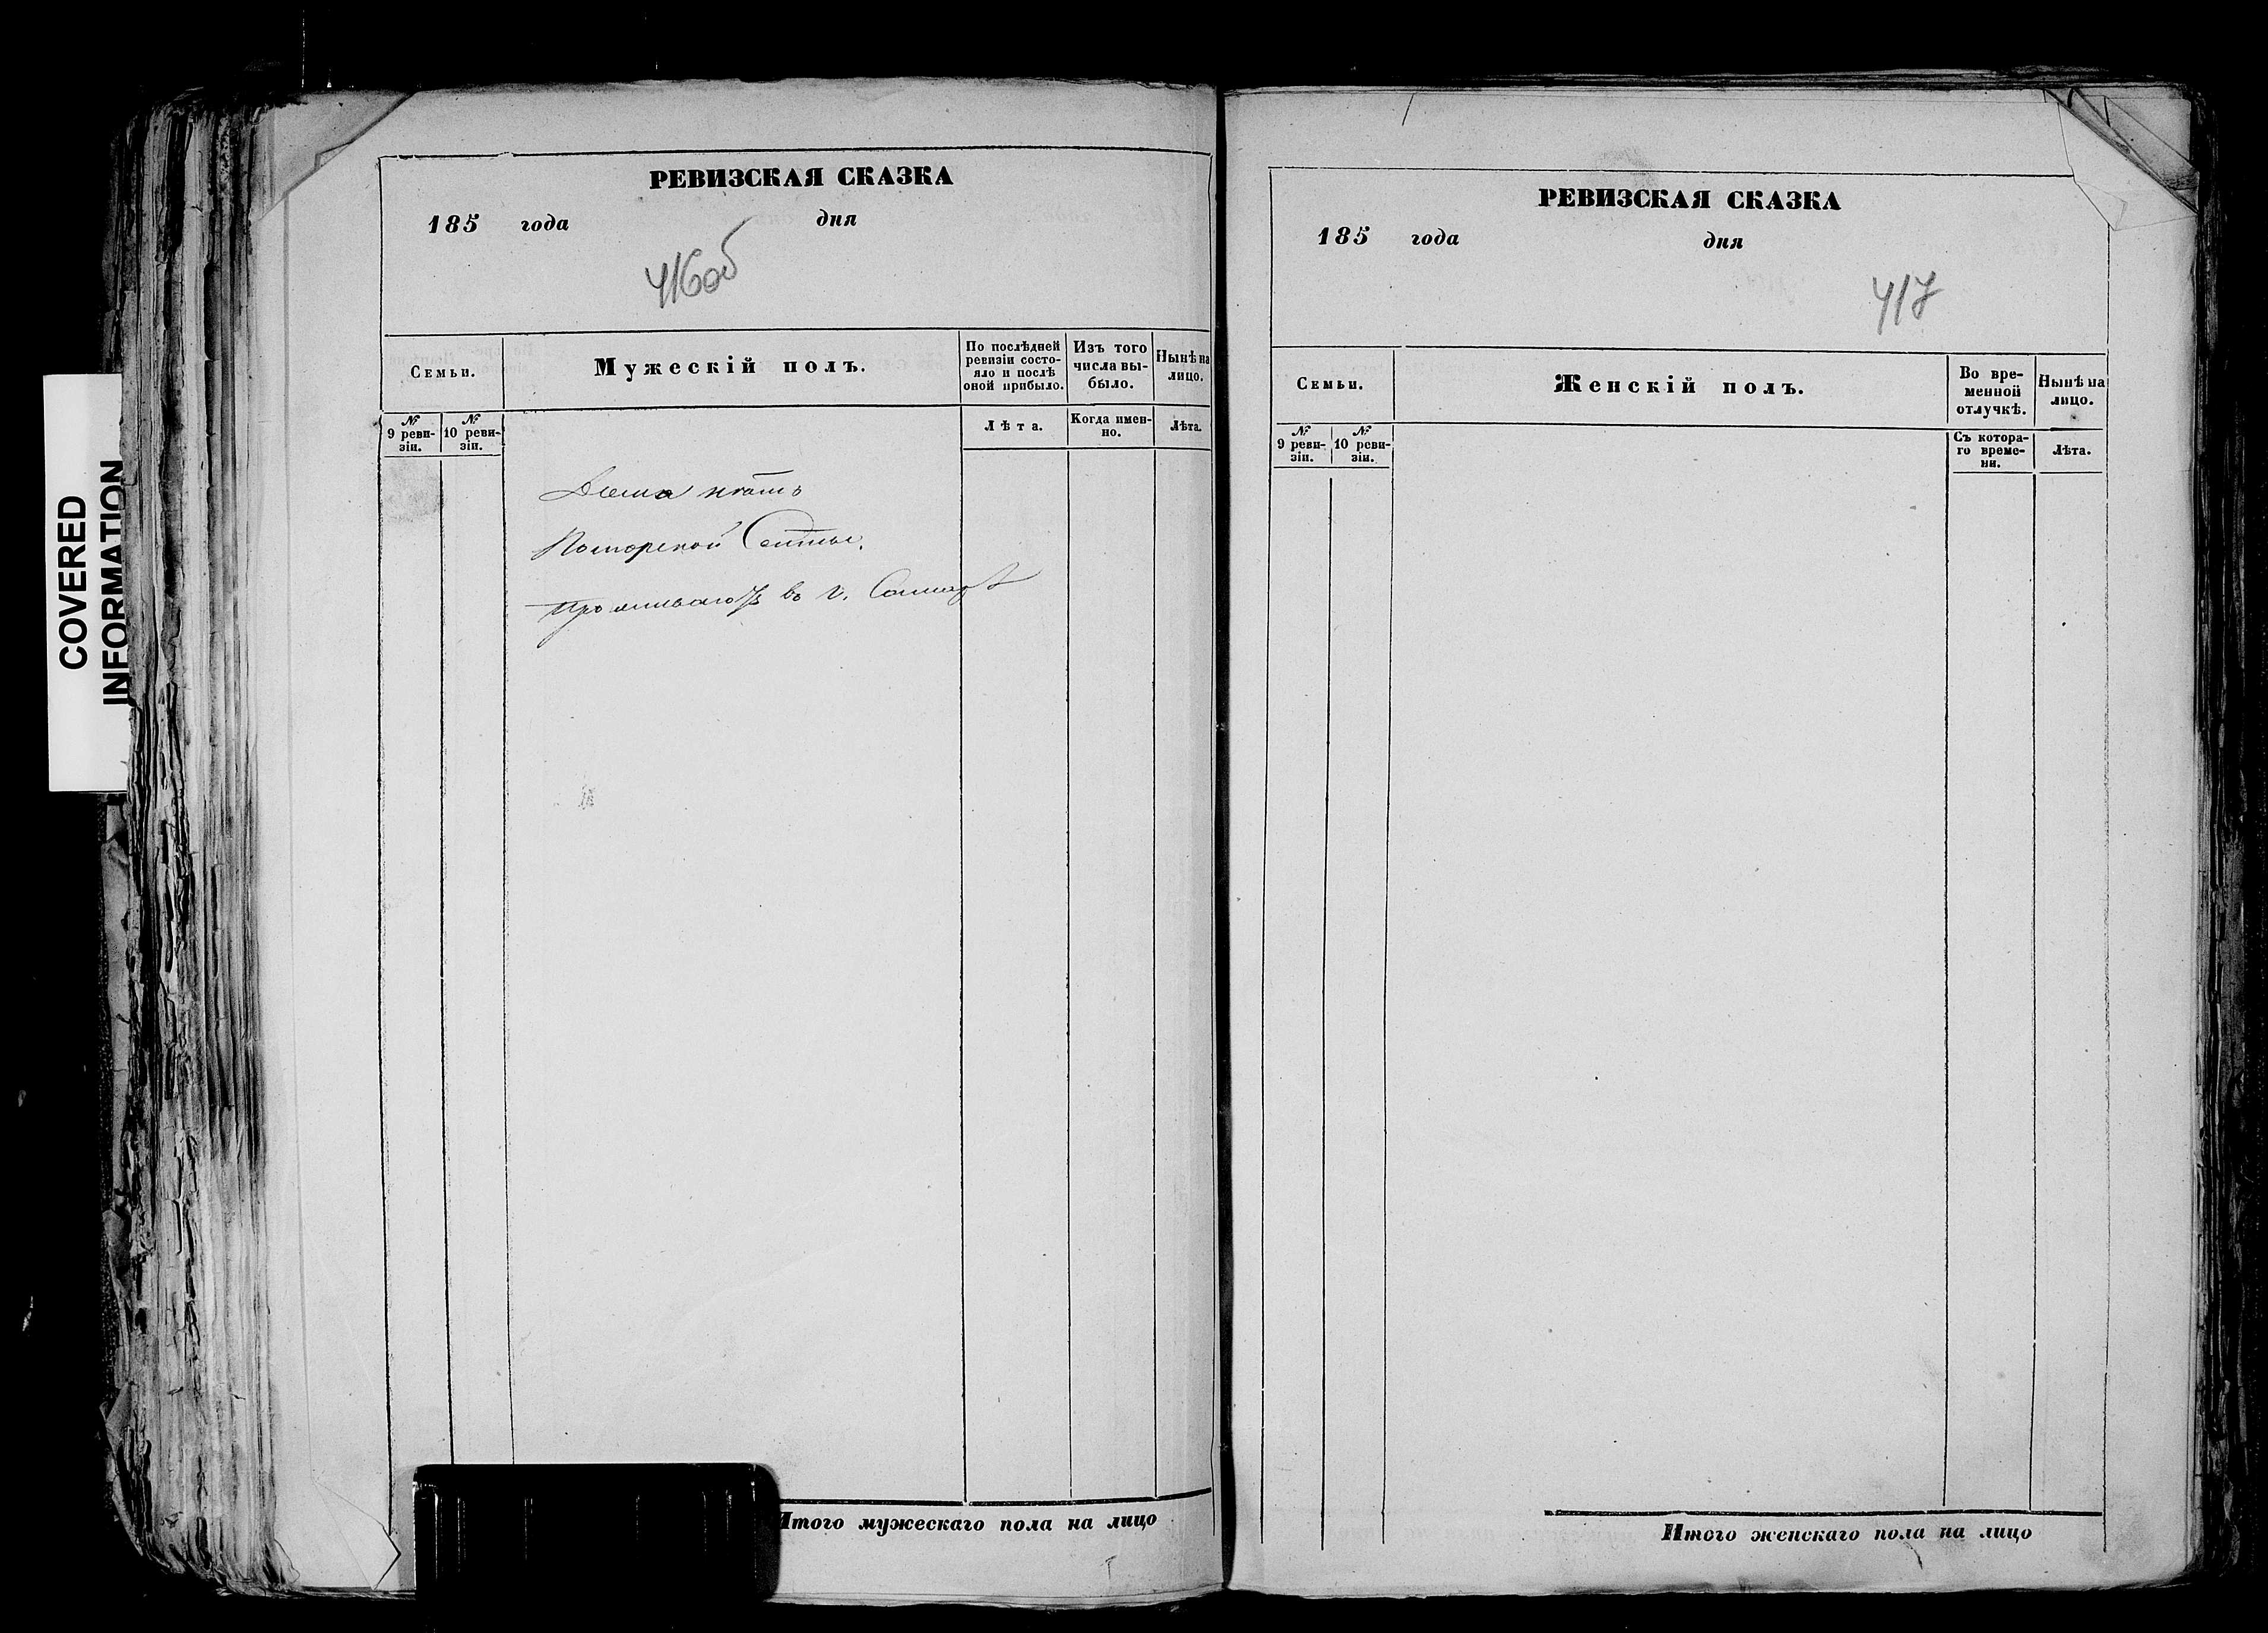 COVERED
INFORMATION
РЕВИЗСКАЯ СКАЗКА
185 года дня
416об
Семьи.
Мужескій полъ.
По послѣдней ревизіи состояло и послѣ оной прибыло.
Изъ того числа выбыло.
Нынѣ на лицо.
№ 9 ревизіи.
№ 10 ревизіи.
Лѣта.
Когда именно.
Лѣта.
Поморской Секты.
проживаютъ въ г. Самарѣ
Итого мужескаго пола на лицо
РЕВИЗСКАЯ СКАЗКА
185 года дня
417
Семьи.
Женскій полъ.
Во временной отлучкѣ.
Нынѣ на лицо.
№ 9 ревизіи.
№ 10 ревизіи.
Съ котораго времени.
Лѣта.
Итого женскаго пола на лицо